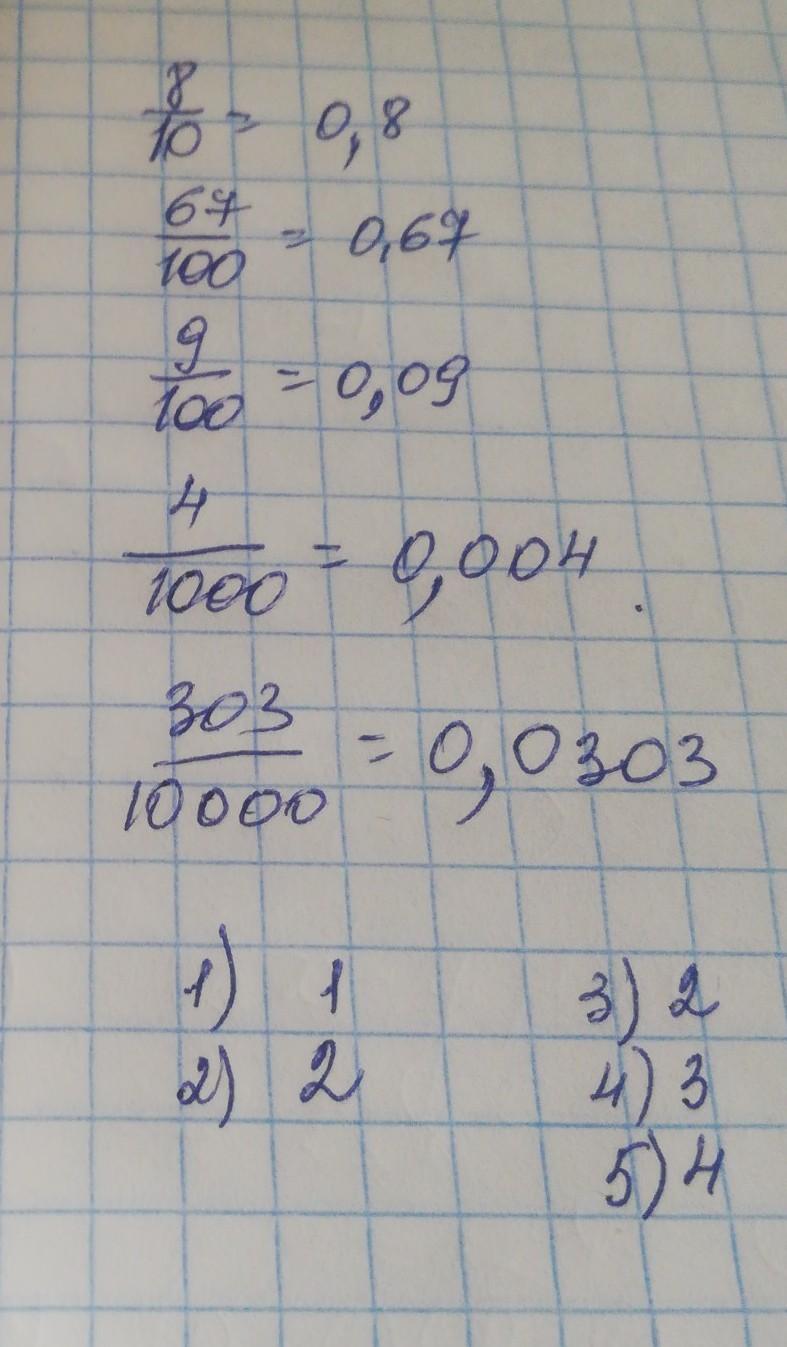 8/10 = 0,8
67/100 = 0,67
9/100 = 0,09
4/1000 = 0,004.
303/10000 = 0,0303
1) 1 3) 2
2) 2 4) 3
5) 4